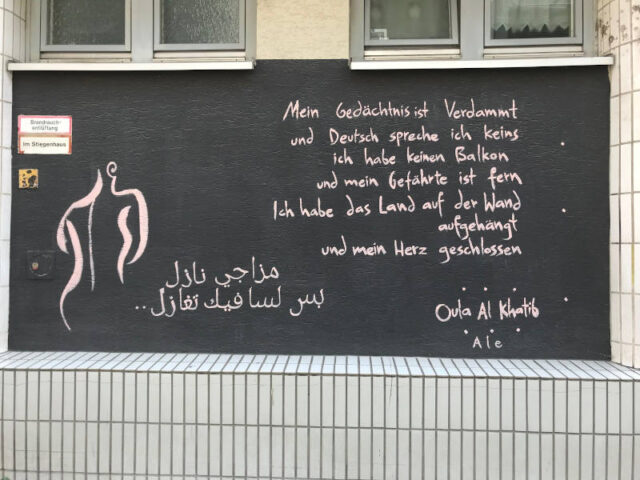 Brandrauch-
entlüftung
Im Stiegenhaus
Mein Gedächtnis ist Verdammt
und Deutsch spreche ich keins
ich habe keinen Balkon
und mein Gefährte ist fern
Ich habe das Land auf der Wand
aufgehängt
und mein Herz geschlossen
مزاجي نازل
بس لسا فيك تغازل..
Oula Al Khatib
Ale